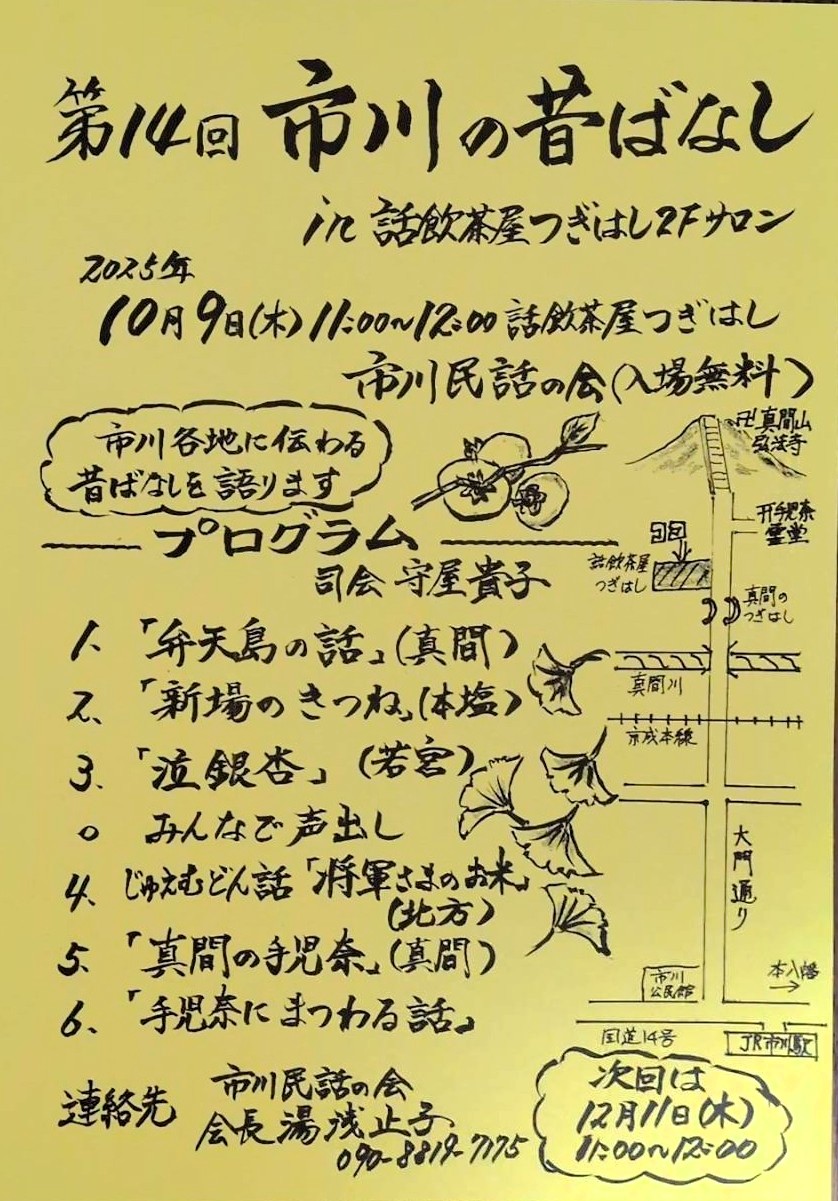 第14回 市川の昔ばなし
in 話飲茶屋つぎはし2Fサロン
2025年
10月9日(木) 11:00〜12:00 話飲茶屋つぎはし
市川民話の会(入場無料)
市川各地に伝わる
昔ばなしを語ります
プログラム
司会 守屋貴子
1.「弁天島の話」(真間)
2.「新場のきつね」(本塩)
3.「泣銀杏」(若宮)
○ みんなで声出し
4. じゅえむどん話「将軍さまのお米」
(北方)
5.「真間の手児奈」(真間)
6.「手児奈にまつわる話」
連絡先 市川民話の会
会長 湯浅止子
090-8819-7175
卍真間山
弘法寺
手児奈
霊堂
話飲茶屋
つぎはし
真間の
つぎはし
真間川
京成本線
大門通り
市川
公民館
本八幡
→
国道14号
JR市川駅
次回は
12月11日(木)
11:00〜12:00